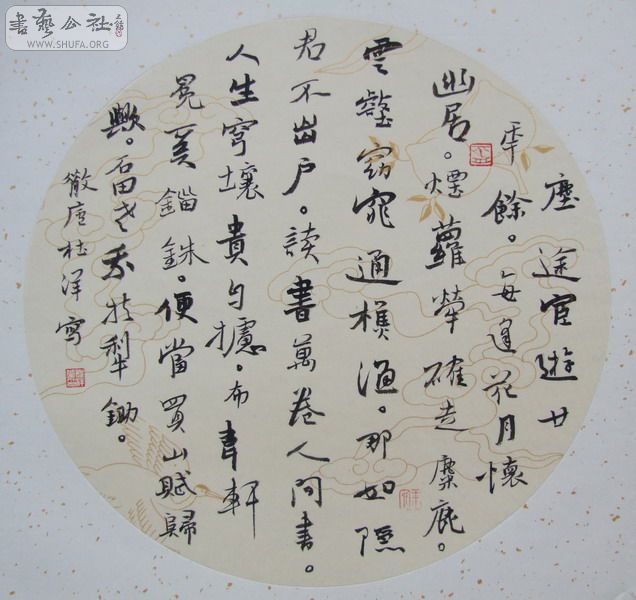 書藝公社
WWW.SHUFA.ORG
塵途宦遊廿
年餘。每逢花月懷
幽居。煙蘿犖確走麋鹿。
雲壑窈窕通樵漁。那如隱
君不出戶。讀書萬卷人間書。
人生穹壤貴自據。布韋軒
冕奚錙銖。便當買山賦歸
歟。石田老我扶犁鋤。
徹廬杜洋寫